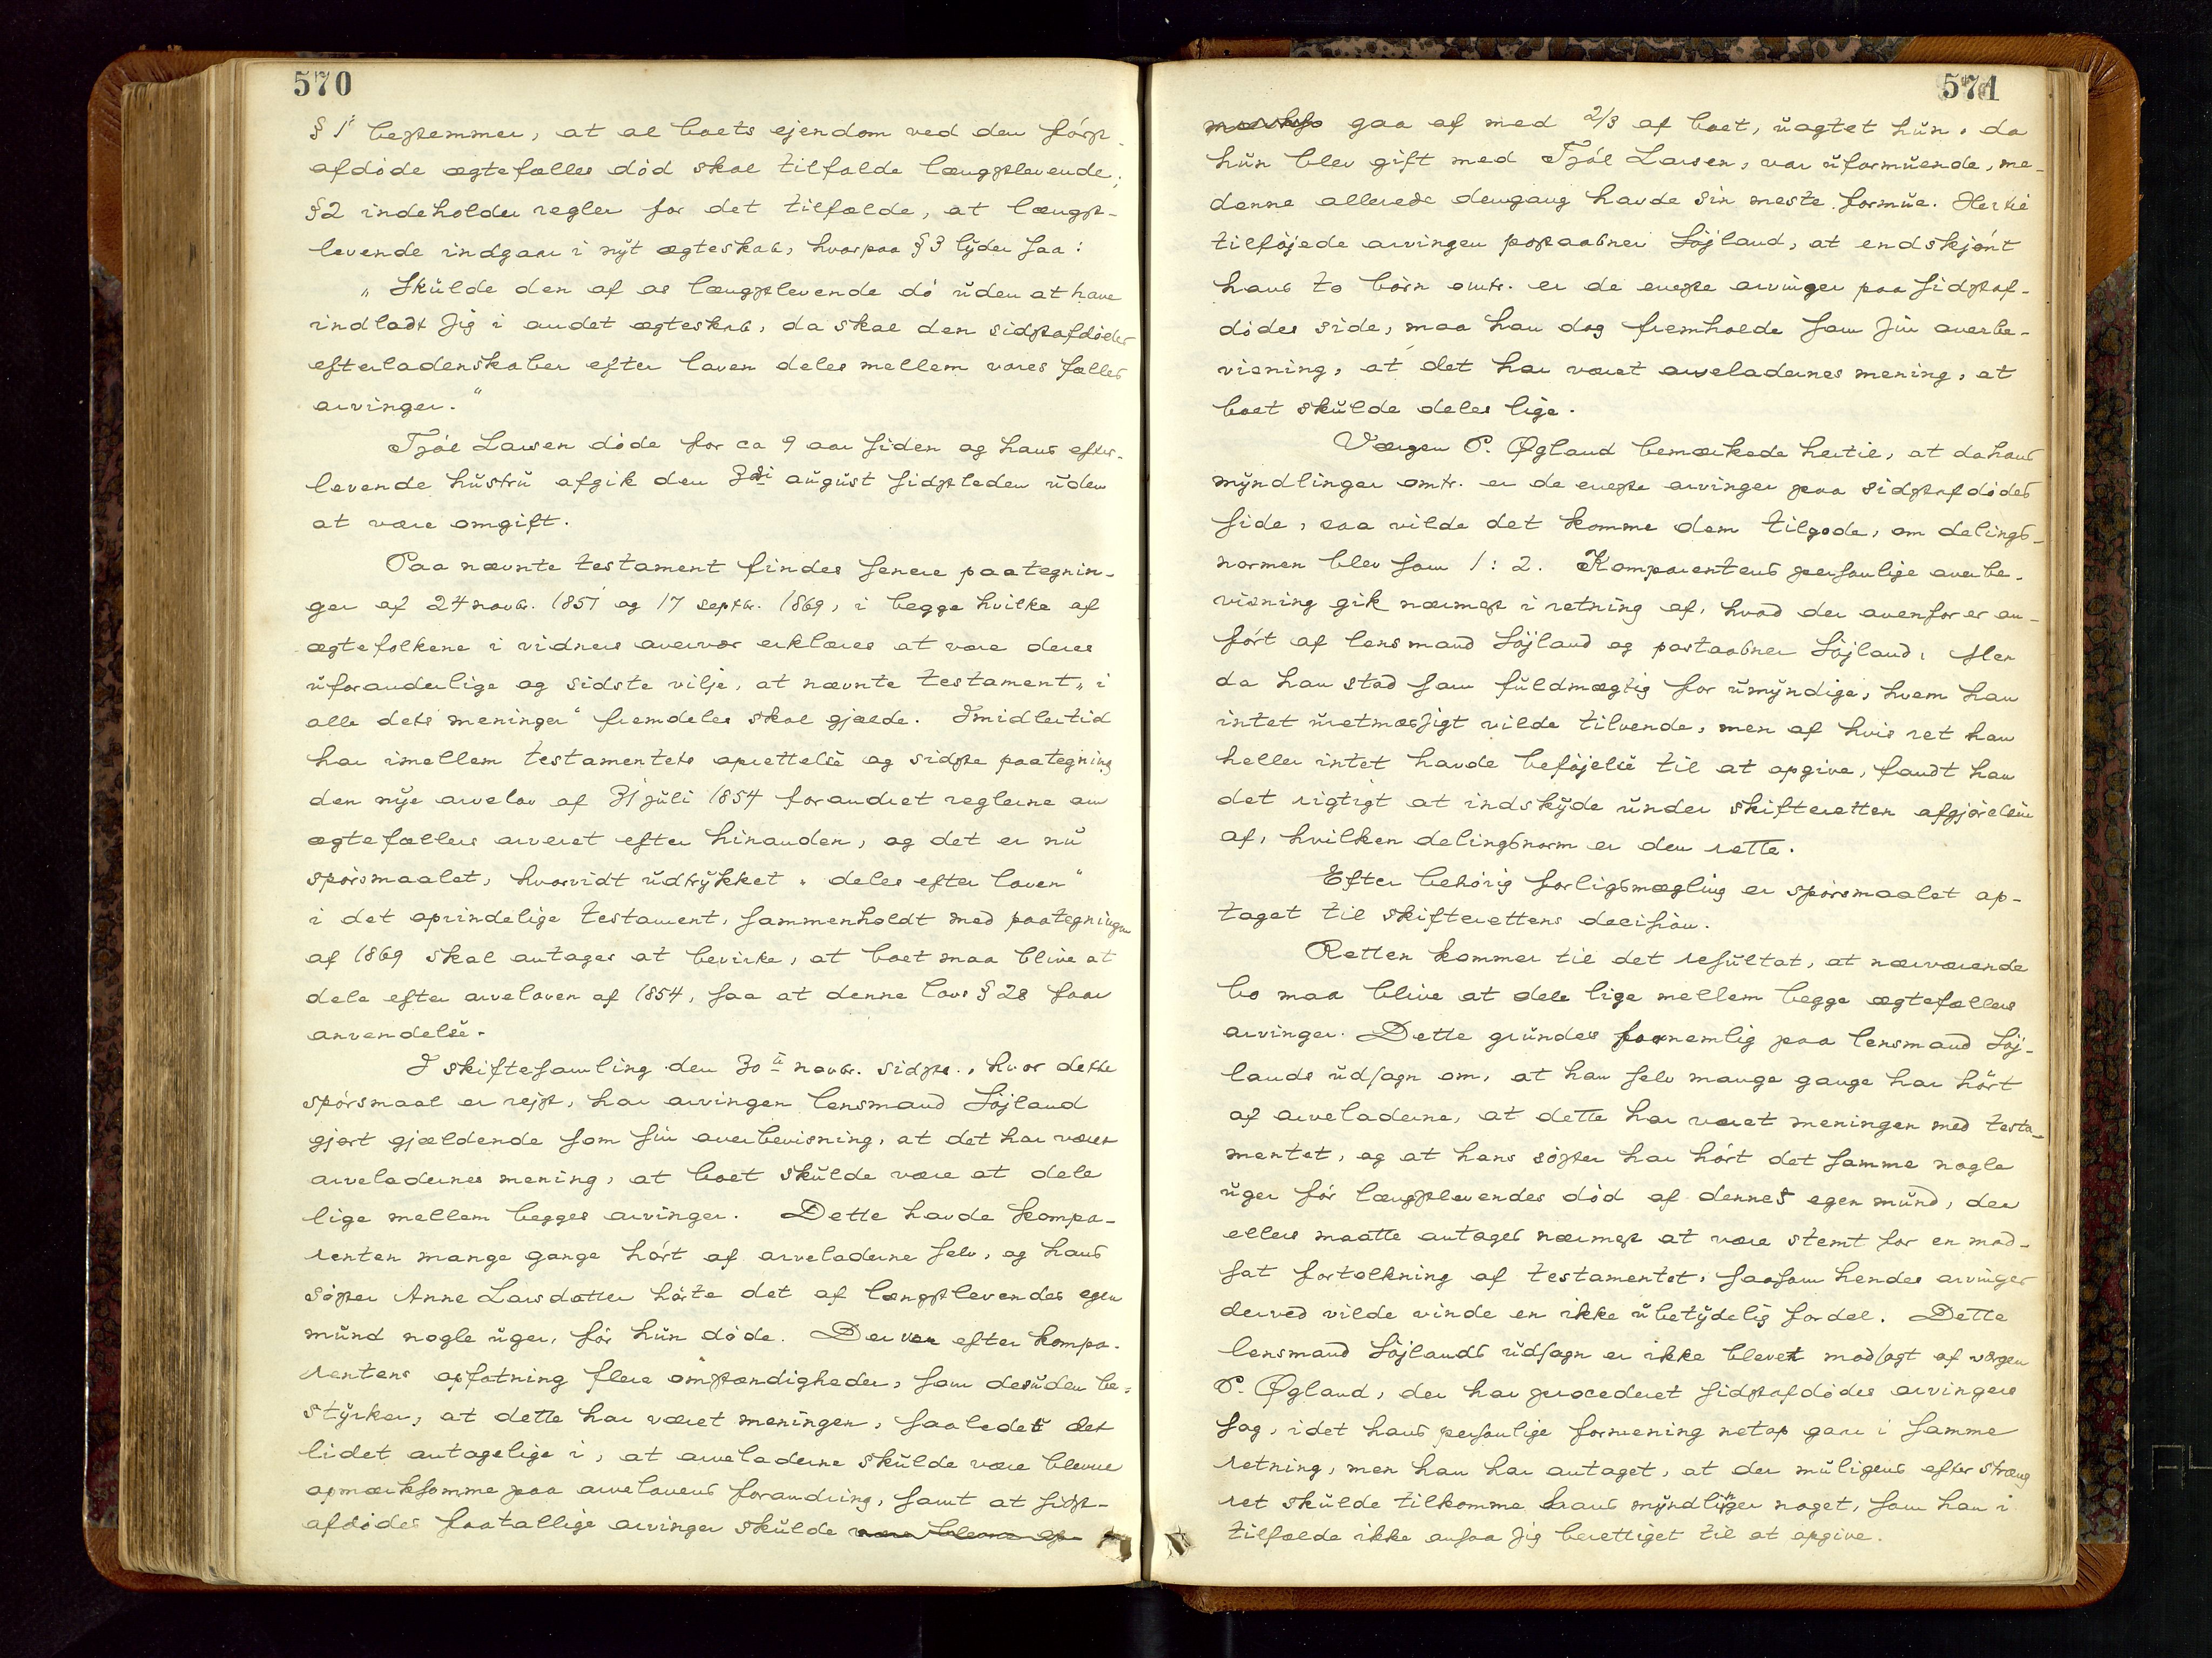 570
§ 1 bestemmer, at al boets ejendom ved den först
afdöde ægtefælles död skal tilfalde længstlevende;
§2 indeholder regler for det tilfælde, at længst-
levende indgaar i nyt ægteskab, hvorpaa § 3 lyder saa:
„ Skulde den af os længstlevende dö uden at have
indladt sig i andet ægteskab, da skal den sidstafdödes
efterladenskaber efter loven deles mellem vores fælles
arvinger.“
Tjöl Larsen döde for ca 9 aar siden og hans efter-
levende hustru afgik den 3di august sidstleden uden
at være omgift.
Paa nævnte testament findes senere paategnin-
ger af 24 novb. 1851 og 17 septbr. 1869, i begge hvilke af
ægtefolkene i vidners overvær erklæres at være deres
uforanderlige og sidste vilje, at nævnte testament „ i
alle dets meninger“ fremdeles skal gjælde. Imidlertid
har imellem testamentets oprettelse og sidste paategning
den nye arvelov af 31 juli 1854 forandret reglerne om
ægtefællers arveret efter hinanden, og det er nu
spörsmaalet, hvorvidt udtrykket „ deles efter loven“
i det oprindelige testament, sammenholdt med paategningen
af 1869 skal antages at bevirke, at boet maa blive at
dele efter arveloven af 1854, saa at denne lovs § 28 faar
anvendelse.
I skiftesamling den 30te novbr. sidste, hvor dette
spörsmaal er rejst, har arvingen lensmand Löjland
gjort gjældende som sin overbevisning, at det har været
arveladernes mening, at boet skulde være at dele
lige mellem begges arvinger. Dette havde kompa-
renten mange gange hört af arveladerne selv, og hans
söster Anne Larsdatter hörte det af længstlevendes egen
mund nogle uger, för hun döde. Der var efter kompa-
rentens opfatning flere omstændigheder, som desuden be-
styrker, at dette har været meningen, saaledes det
lidet antagelige i, at arveladerne skulde være blevne
opmærksomme paa arvelovens forandring, samt at sidst-
afdödes faatallige arvinger skulde være blevne op-
571
mærkso gaa af med 2/3 af boet, uagtet hun, da
hun blev gift med Tjöl Larsen, var uformuende, me-
denne allerede dengang havde sin meste formue. Hertil
tilföjede arvingen postaabner Löjland, at endskjönt
hans to börn omtr. er de eneste arvinger paa sidstaf-
dödes side, maa han dog fremholde som sin overbe-
visning, at det har været arveladernes mening, at
boet skulde deles lige.
Værgen P. Øgland bemærkede hertil, at da hans
myndlinger omtr. er de eneste arvinger paa sidstafdödes
side, saa vilde det komme dem tilgode, om delings-
normen blev som 1 : 2. Komparentens personlige overbe-
visning gik nærmest i retning af, hvad der ovenfor er an-
fört af lensmand Löjland og postaabner Löjland, Men
da han stod som fuldmægtig for umyndige, hvem han
intet uretmæssigt vilde tilvende, men af hvis ret han
heller intet havde beföjelse til at opgive, fandt han
det rigtigt at indskyde under skifteretten afgjörelsen
af, hvilken delingsnorm er den rette.
Efter behörig forligsmægling er spörsmaalet op-
taget til skifterettens decision.
Retten kommer til det resultat, at nærværende
bo maa blive at dele lige mellem begge ægtefællers
arvinger. Dette grundes fornemlig paa lensmand Löj-
lands udsagn om, at han selv mange gange har hört
af arveladerne, at dette har været meningen med testa-
mentet, og at hans söster har hört det samme nogle
uger för længstlevendes död af dennes egen mund, der
ellers maatte antages nærmest at være stemt for en mod-
sat fortolkning af testamentet, saasom hendes arvinger
derved vilde vinde en ikke ubetydelig fordel. Dette
lensmand Löjlands udsagn er ikke blevet modsagt af værgen
P. Øgland, der har procederet sidstafdödes arvingers
sag, idet hans personlige formening netop gaar i samme
retning, men han har antaget, at der muligens efter stræng
ret skulde tilkomme hans myndlinger noget, som han i
tilfælde ikke ansaa sig berettiget til at opgive.